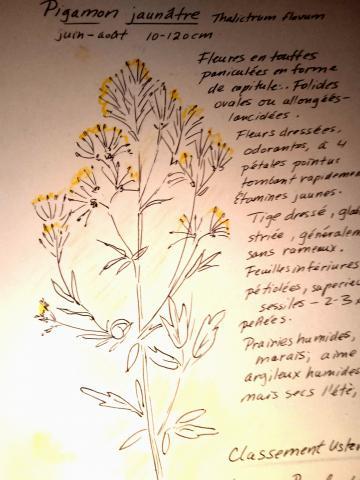 Pigamon jaunâtre Thalictrum flavum
juin-août 10-120cm
Fleures en touffes
paniculées en forme
de capitule. Folides
ovales ou allongées-
lancidées.
Fleurs dressées,
odorantes, à 4
pétales pointus
tombant rapidement
Étamines jaunes.
Tige dressé, glab
striée, généralem
sans rameux.
Feuilles inférieures
pétiolées, superieu
sessiles - 2-3 x
Prairies humides,
marais; aime
argileux humides
mais secs l'été,
Classement Uster